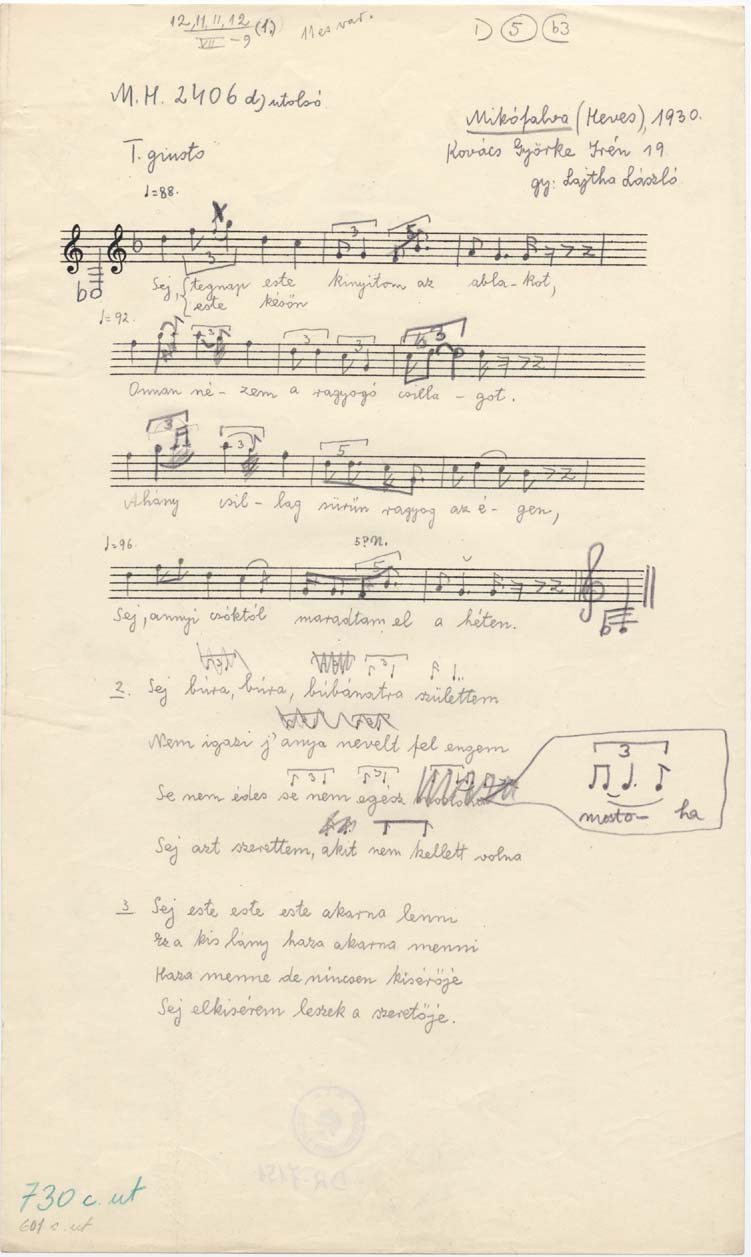 12, 11, 11, 12 (1.) 11 es var. 1) 5 b3
VII - 9
M.H. 2406 d) utolsó
Mikófalva (Heves), 1930.
T. giusto
Kovács Györke Irén 19.
gy: Lajtha László
♩=88.
3 3 5
Sej, tegnap este kinyitom az abla-kot,
este késön
♩=92.
3 3 3 3
Onnan né-zem a ragyogó csilla-got.
3 3 5
Ahány csil-lag sürün ragyog az é-gen,
♩=96. 5
Sej, annyi csóktól maradtam el a héten.
3
2. Sej búra, búra, búbánatra születtem
Nem igazi j'anya nevelt fel engem
3 3
Se nem édes se nem egész
3
mosto- ha
Sej azt szerettem, akit nem kellett volna
3 Sej este este este akarna lenni
Ez a kis lány haza akarna menni
Haza menne de nincsen kisérője
Sej elkisérem leszek a szeretője.
730 c. ut
601 c. ut